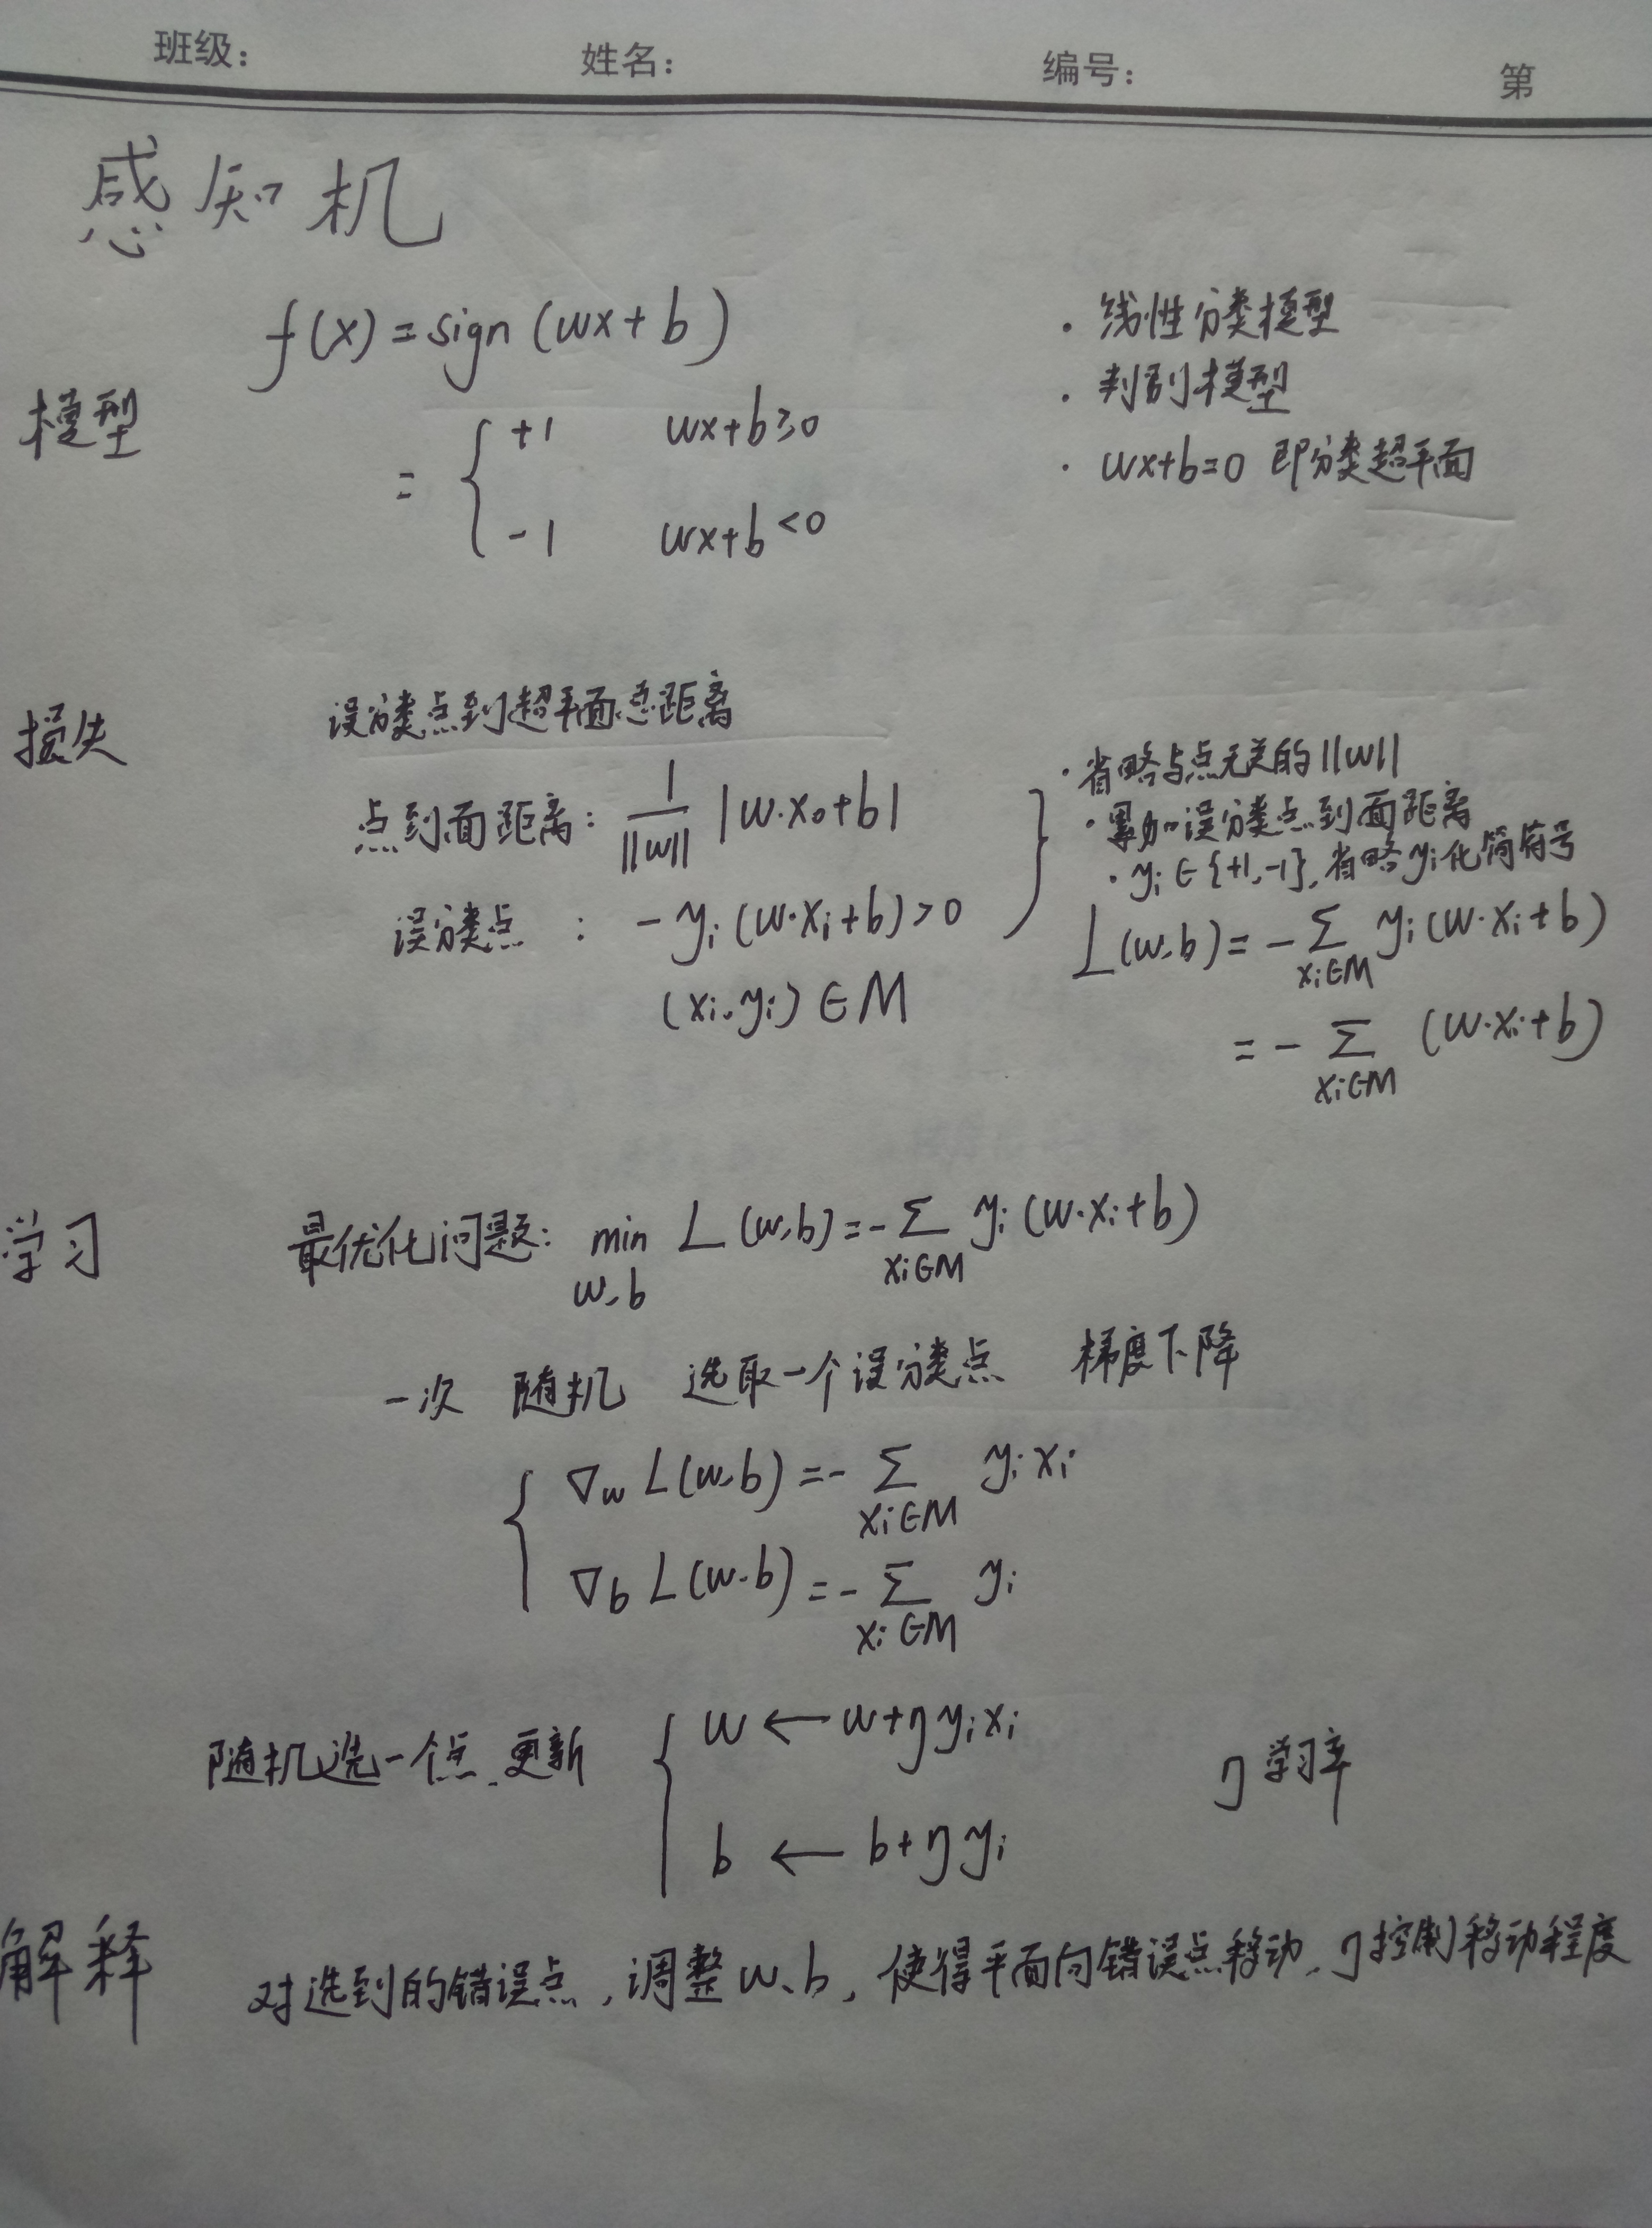 班级: 姓名: 编号: 第
感知机
f(x)=sign(wx+b)
模型
= { +1 wx+b≥0
-1 wx+b<0
· 线性分类模型
· 判别模型
· wx+b=0 即分类超平面
损失 误分类点到超平面总距离
点到面距离: 1/||w|| |w·x₀+b|
误分类点 : -yᵢ(w·xᵢ+b)>0
(xᵢ,yᵢ)∈M
· 省略与点无关的||w||
· 累加误分类点到面距离
· yᵢ∈{+1,-1},省略yᵢ化简符号
L(w,b)=-∑_{xᵢ∈M} yᵢ(w·xᵢ+b)
=-∑_{xᵢ∈M} (w·xᵢ+b)
学习 最优化问题: min_{w,b} L(w,b)=-∑_{xᵢ∈M} yᵢ(w·xᵢ+b)
一次 随机 选取一个误分类点 梯度下降
{ ∇_w L(w,b)=-∑_{xᵢ∈M} yᵢxᵢ
∇_b L(w,b)=-∑_{xᵢ∈M} yᵢ
随机选一个点,更新 { w←w+ηyᵢxᵢ
b←b+ηyᵢ
η学习率
解释 对选到的错误点,调整w、b,使得平面向错误点移动,η控制移动程度